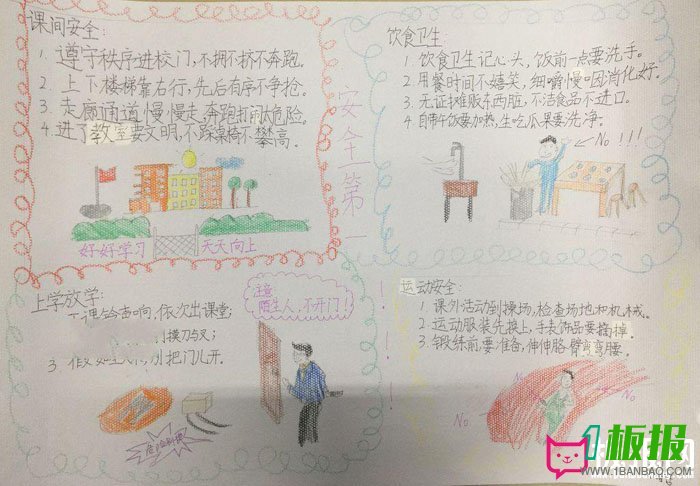 课间安全:
1. 遵守秩序进校门,不拥不挤不奔跑.
2. 上下楼梯靠右行,先后有序不争抢.
3. 走廊通道慢慢走,奔跑打闹太危险.
4. 进了教室要文明,不踩桌椅不攀高.
好好学习 天天向上
安全第一
饮食卫生:
1. 饮食卫生记心头,饭前一点要洗手.
2. 用餐时间不嬉笑,细嚼慢咽消化好.
3. 无证摊贩东西脏,不洁食品不进口.
4. 自带午饭要加热,生吃瓜果要洗净.
No!!!
上学放学:
一课铃声响,依次出课堂;
摸刀与叉;
3. 别把门儿开.
注意:
陌生人,不开门!
!
!
运动安全:
1. 课外活动到操场,检查场地和机械.
2. 运动服装先换上,手表饰品要摘掉.
3. 锻练前要准备,伸伸胳臂弯弯腰.
No
No
No
1板报
WWW.1BANBAO.COM